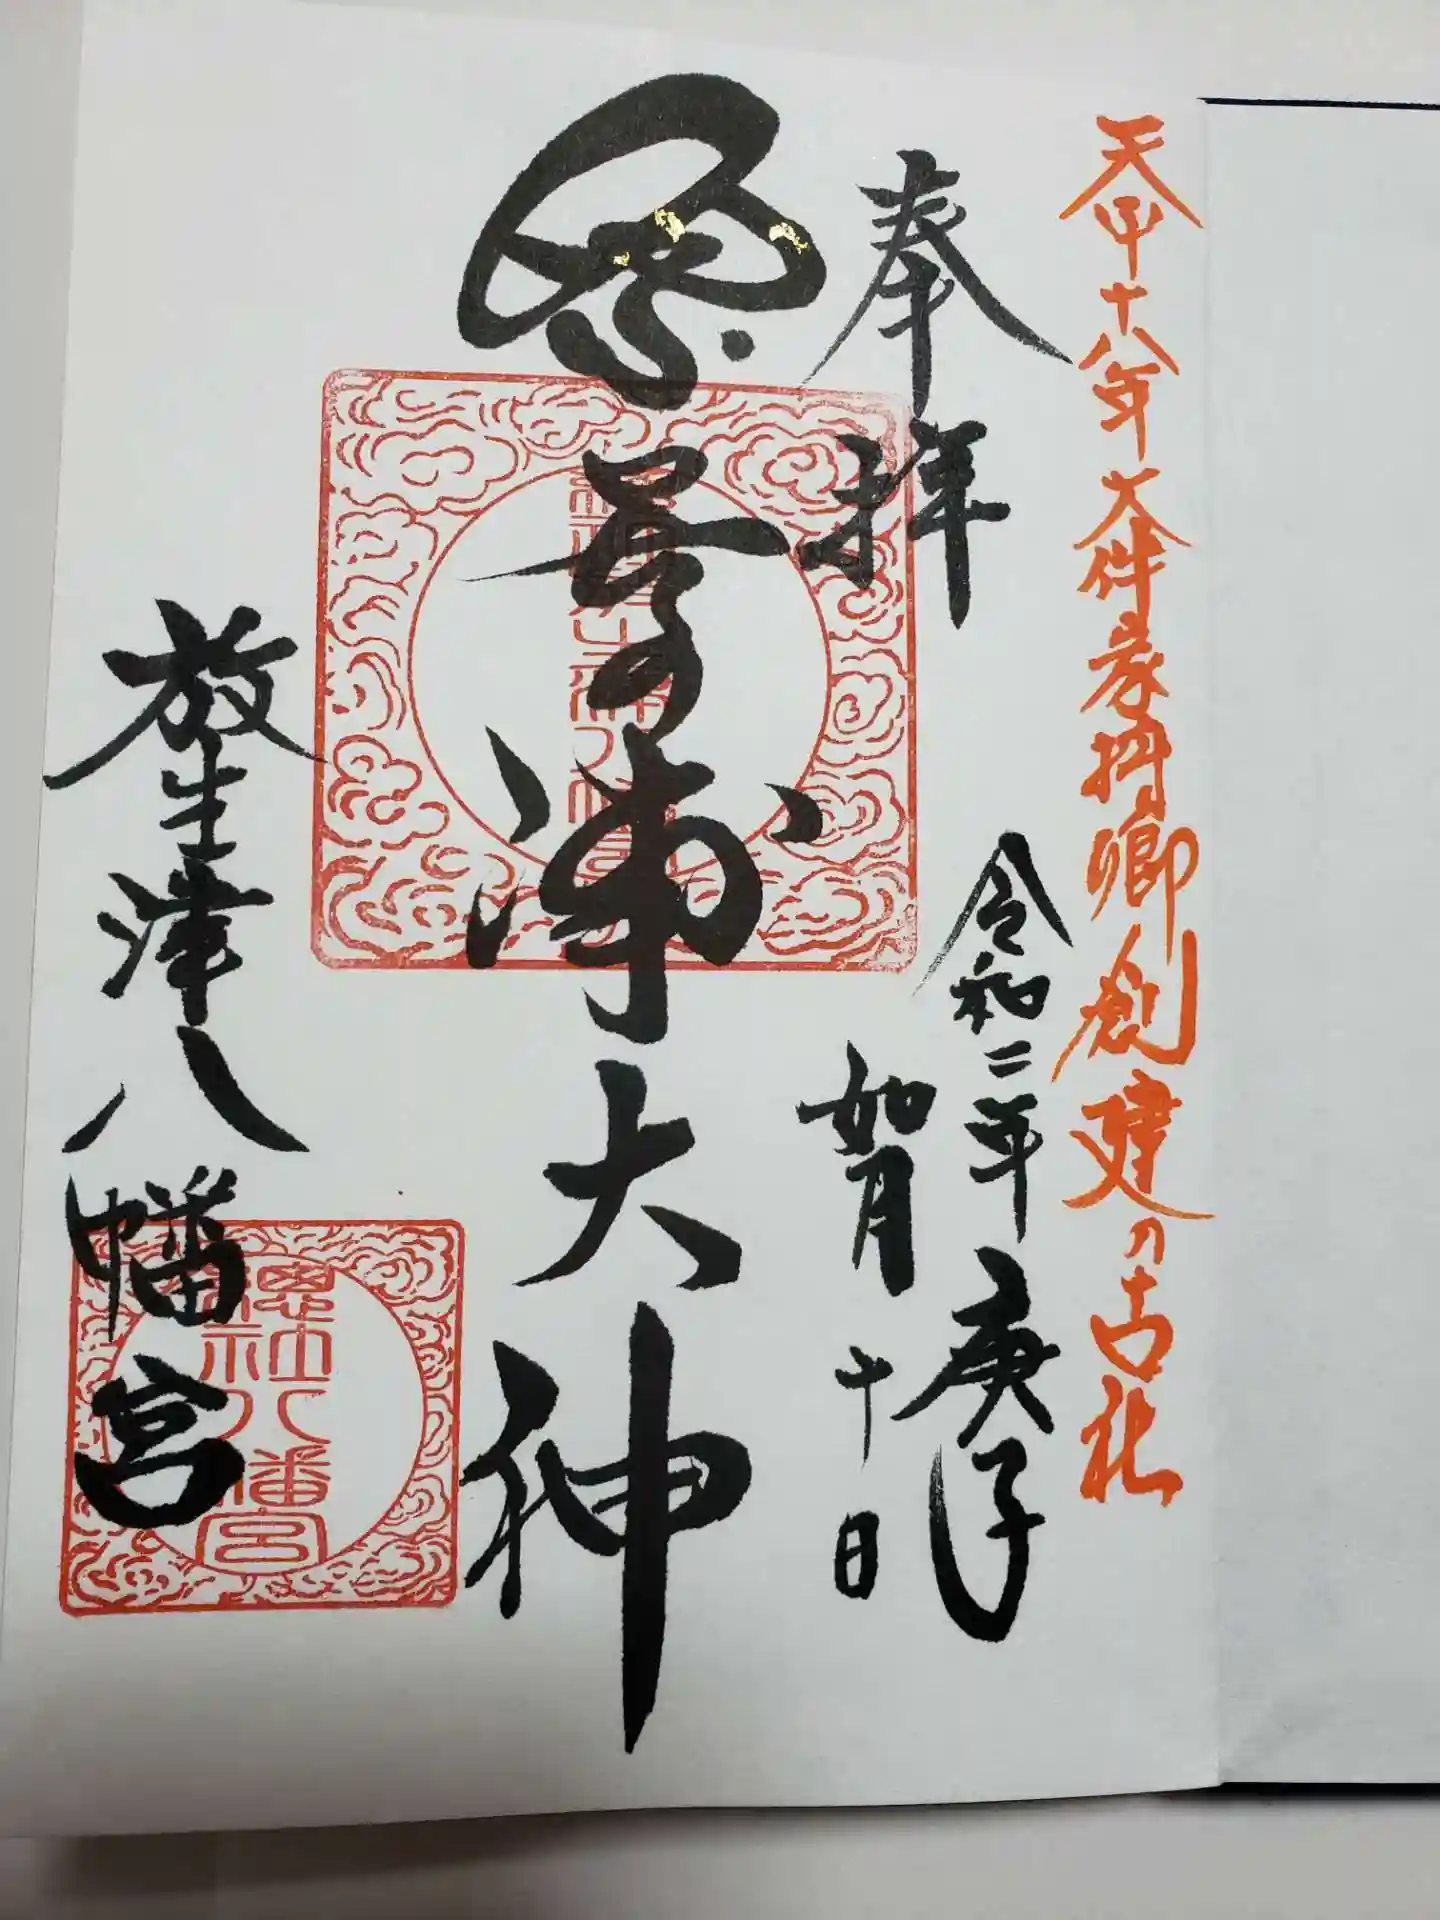 天平十八年大伴家持卿創建の古社
奉拝
令和二年庚子
如月十日
奈呉の浦大神
放生津八幡宮
總社八幡宮